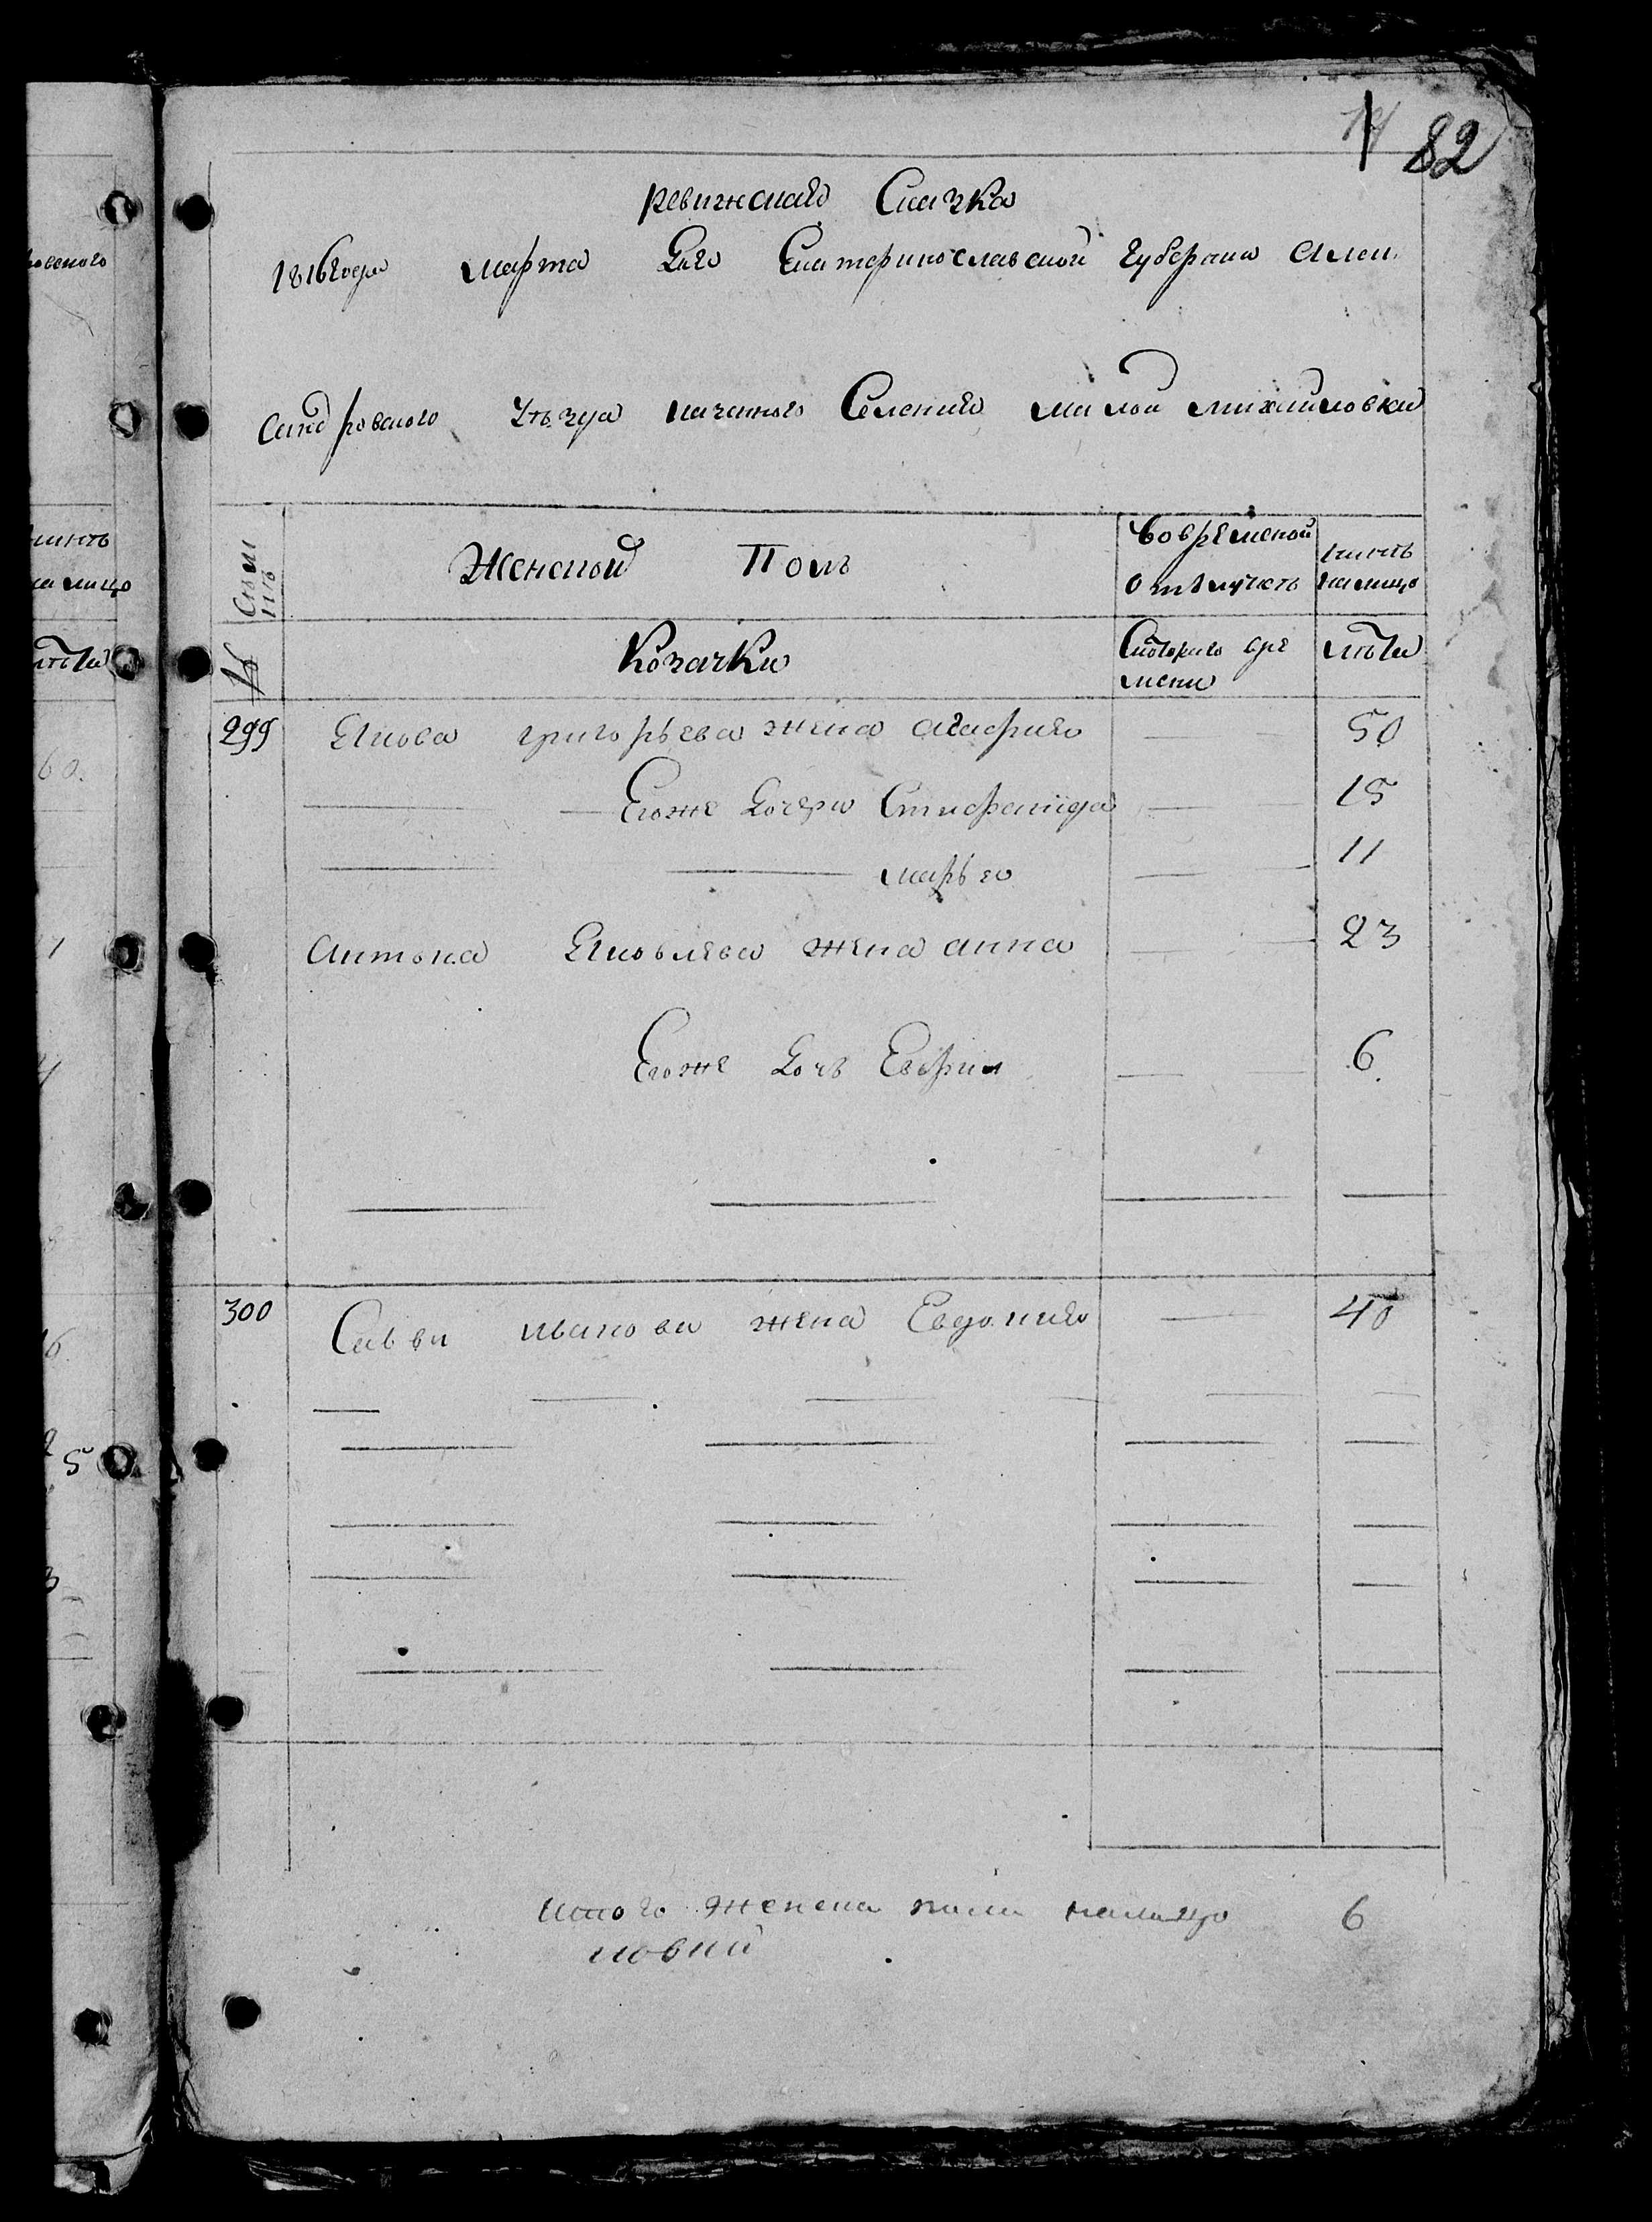 82
ревижская Сказка
1816 года марта Дня Екатеринославской губернии Алек
сандровского уѣзда казенного Селения малой михайловки
Семьи
Женской Полъ
Во времяной
отълучкѣ
нынѣ
налицо
№
Козачки
Скоторого вре
мени
лѣта
299 Якова григорьева жена агафия — 50
Егоже дочери Стефанида — 15
марья — 11
Антона Яковлева жена анна — 23
Егоже дочь Евфим — 6
300 Саввы иванова жена Евдокия — 40
итого женска пола налицо 6